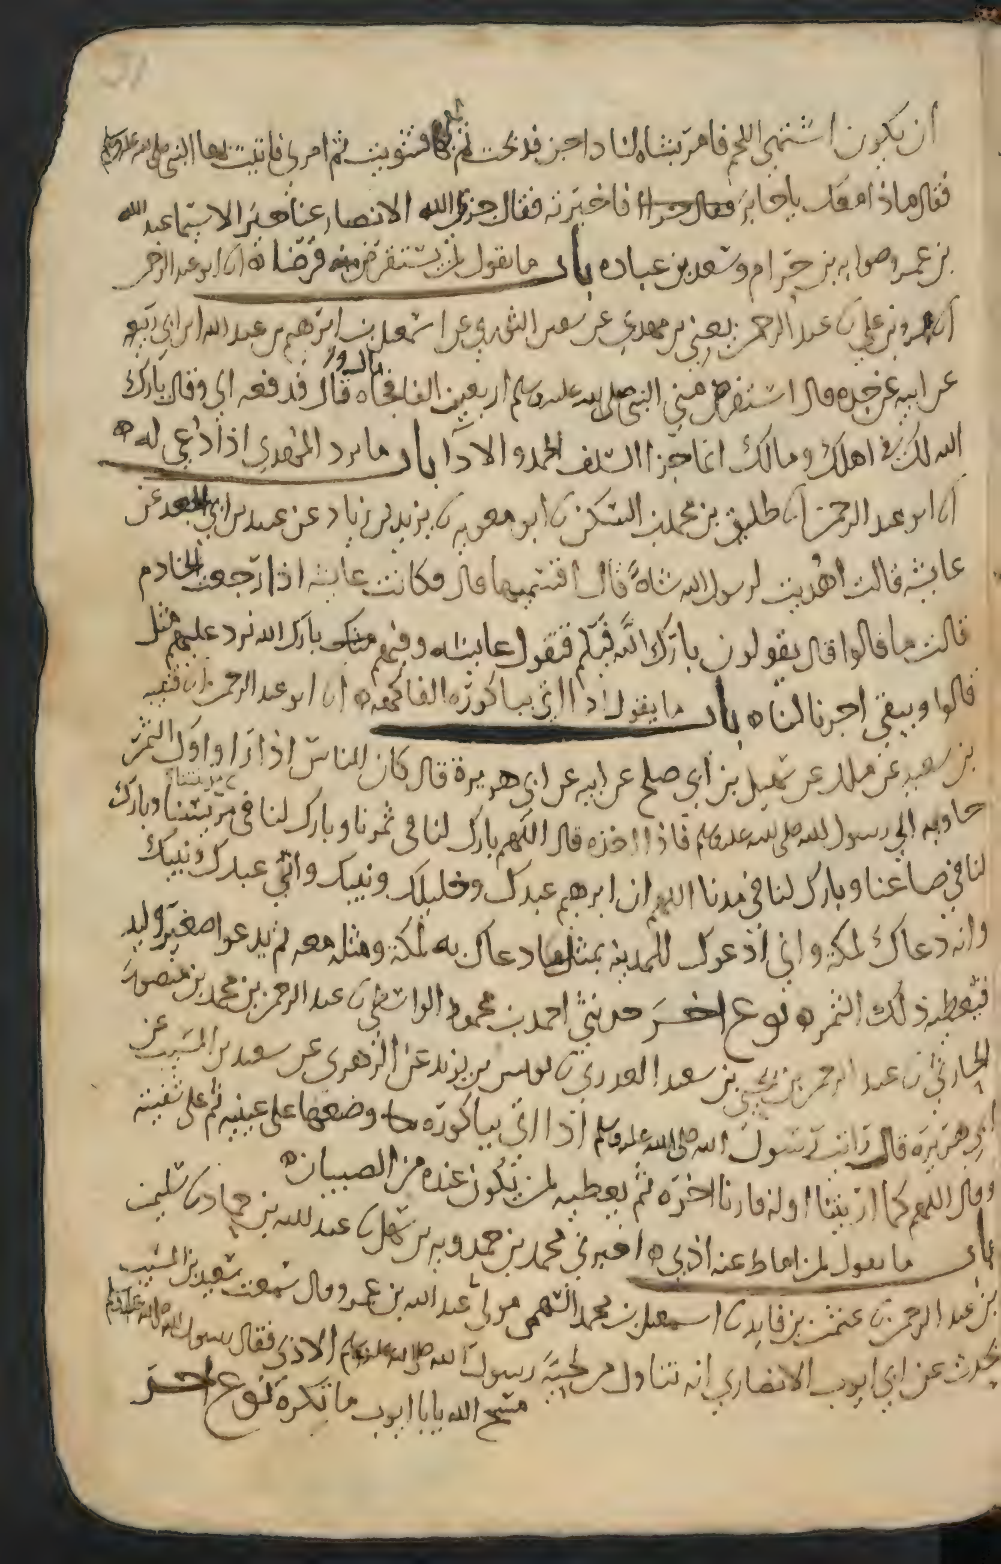 ان يكون اشتهى اللحم فامر بشاه لنا داجن فذبحت ثم فشويت ثم امرني فاتيت بها النبي صلى الله عليه وسلم
فقال ماذا معك يا جابر فاخبرته فقال جزى الله الانصار عنا خيرا لا سيما عبد الله
بن عمرو بن حرام وسعد بن عباده باب ما يقول لمن يستقرض منه قرضا ه ابو عبد الرحمن
عمرو بن علي عبد الرحمن يعني بن مهدي عن سفين الثوري عن اسمعيل بن ابرهيم بن عبد الله ابن ابي ربيعه
عن ابيه عن جده قال استقرض مني النبي صلى الله عليه وسلم اربعين الفا فجاه مال قال فدفعه الي وقال بارك
الله لك في اهلك ومالك انما جزا السلف الحمد والادآ باب ما يرد المهدي اذا دعي له ه
ابو عبد الرحمن طليق بن محمد بن السكن ابو معويه يزيد بن زياد عن عبيد بن ابي الجعد عن
عايشه قالت اهديت لرسول الله شاةً قال اقسميها قال فكانت عايشه اذا رجعت الخادم
قالت ما قالوا قال يقولون بارك الله فيكم فتقول عايشه وفيهم بارك الله نرد عليهم مثل
قالوا ويبقى اجرنا لنا ه باب ما يقول اذا اتي بباكورة الفاكهه ه ابو عبد الرحمن قتيبه
بن سعيد عن ملك عن سهيل بن ابي صلح عن ابيه عن ابي هريرة قال كان الناس اذا راوا اول الثمر
جاو به الى رسول الله صلى الله عليه وسلم فاذا اخذه قال اللهم بارك لنا في ثمرنا وبارك لنا في مدينتنا وبارك
لنا في صاعنا وبارك لنا في مدنا اللهم ان ابرهيم عبدك وخليلك ونبيك واني عبدك ونبيك
وانه دعاك لمكة واني ادعوك للمدينه بمثل ما دعاك به لمكة ومثله معه ثم يدعوا صغير وليد
فيعطيه ذلك الثمر ه نوع اخر حدثني احمد بن محمود الواسطي عبد الرحمن بن محمد بن منصور
الحارثي عبد الرحمن بن يحيى بن سعيد العدري يونس بن يزيد عن الزهري عن سعيد بن المسيب عن
ابي هريرة قال رايت رسول الله صلى الله عليه وسلم اذا اتي بباكورة وضعها على عينيه ثم على شفتيه
وقال اللهم كما اريتنا اوله فارنا اخره ثم يعطيه لمن يكون عنده من الصبيان ه
باب ما يقول لمن اماط عنه اذى ه اخبرني محمد بن حمدويه بن سهل عبد الله بن حماد سليمن
بن عبد الرحمن عثمن بن فايد اسمعيل بن محمد السهمي مولى عبد الله بن عمرو قال سمعت سعيد بن المسيب
يحدث عن ابي ايوب الانصاري انه تناول من لحية رسول الله صلى الله عليه وسلم الاذى فقال رسول الله صلى الله عليه وسلم
مسح الله يا ابا ايوب ما تكره نوع اخر